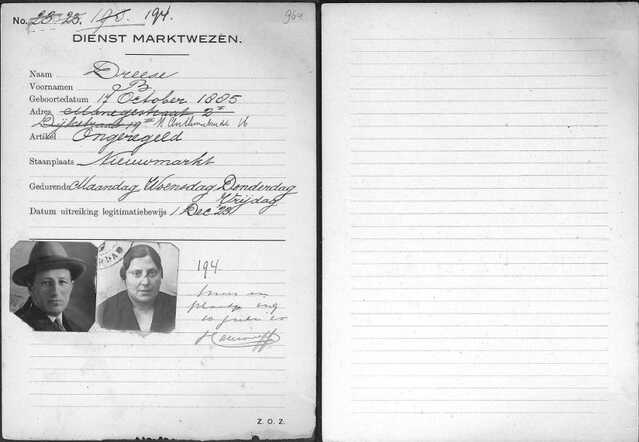 No. 23-25. 190. 194. 964
DIENST MARKTWEZEN.
Naam Dreese
Voornamen B
Geboortedatum 17 October 1885
Adres Manegestraat 2
Dijkstraat 19 N.
Artikel Ongeregeld
Staanplaats Nieuwmarkt
Gedurende Maandag Woensdag Donderdag
Vrijdag
Datum uitreiking legitimatiebewijs 1 Dec 23.
194.
Z. O. Z.